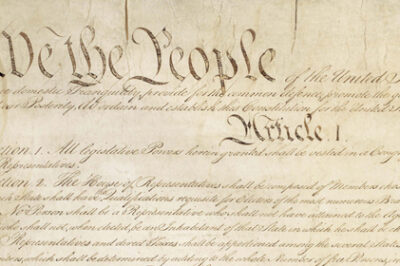 We the People
of the United
domestic Tranquility, provide for the common defence, promote the
Posterity, do ordain and establish this Constitution for the United
Article. I.
ction. 1. All legislative Powers herein granted shall be vested in a Cong
Representatives.
ction. 2. The House of Representatives shall be composed of Members chos
State shall have Qualifications requisite for Electors of the most numerous B
No Person shall be a Representative who shall not have attained to the Age
who shall not, when elected, be an Inhabitant of that State in which he shall be
Representatives and direct Taxes shall be apportioned among the several Stat
which shall be determined by adding to the whole Number of free Persons,